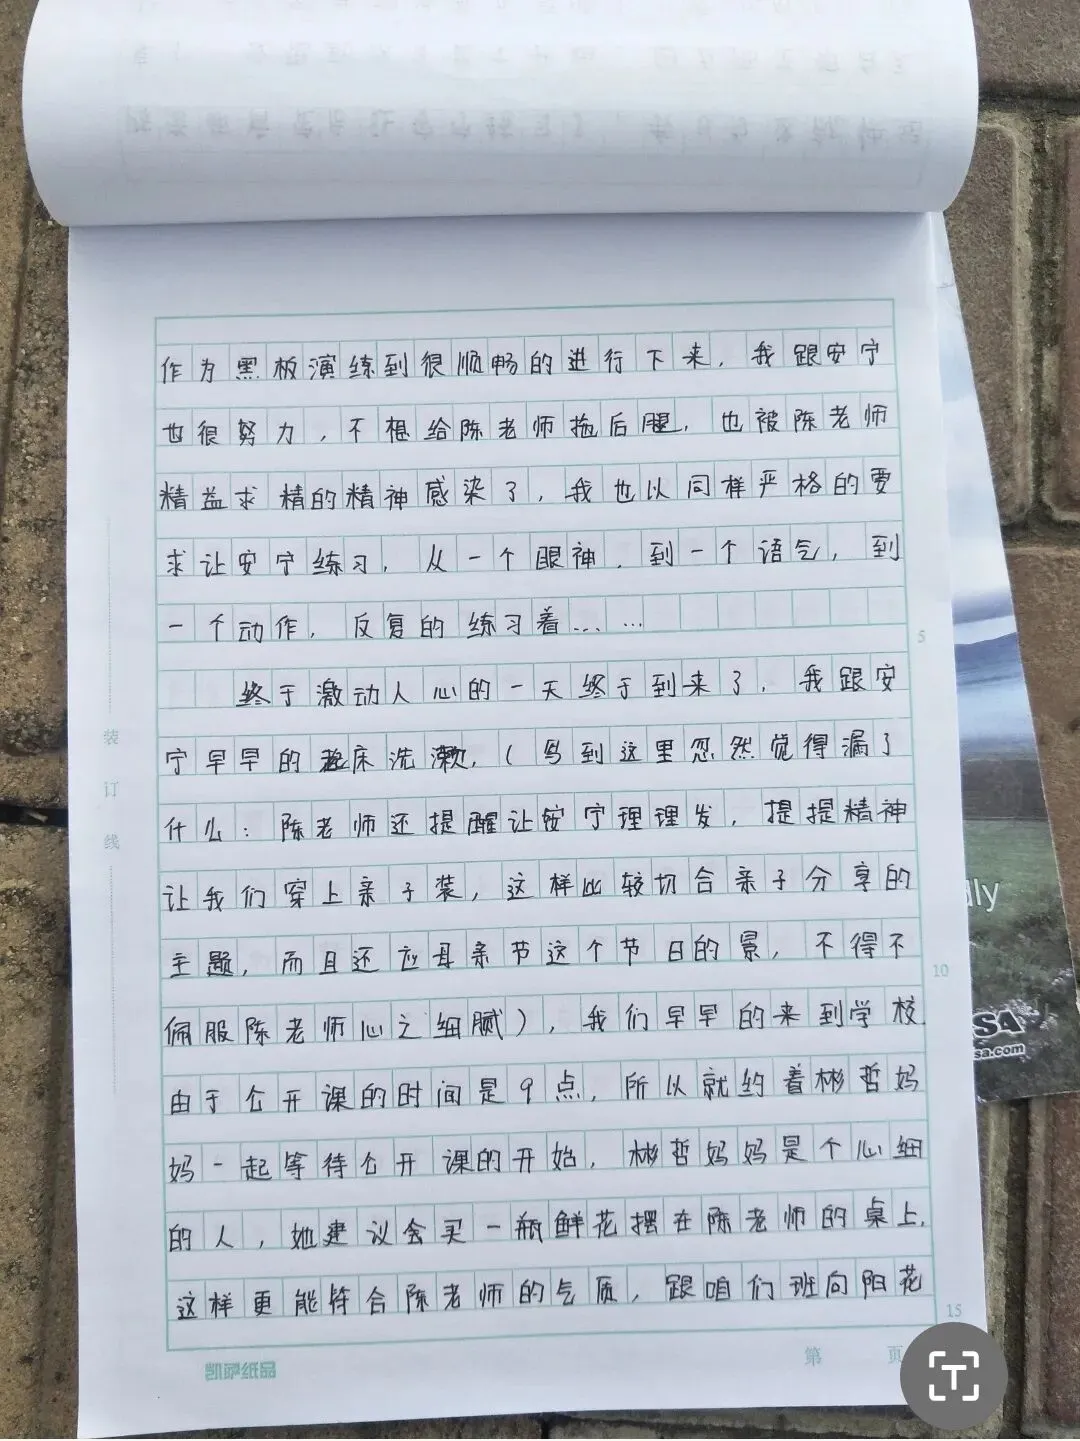 作为黑板演练到很顺畅的进行下来，我跟安宁
也很努力，不想给陈老师拖后腿，也被陈老师
精益求精的精神感染了，我也以同样严格的要
求让安宁练习，从一个眼神．到一个语气，到
一个动作，反复的练习着……
终于激动人心的一天终于到来了，我跟安
宁早早的起床洗漱，（写到这里忽然觉得漏了
什么：陈老师还提醒让安宁理理发，提提精神
让我们穿上亲子装，这样比较切合亲子分享的
主题，而且还应母亲节这个节日的景，不得不
佩服陈老师心之细腻），我们早早的来到学校
由于公开课的时间是9点，所以就约着彬哲妈
妈一起等待公开课的开始，彬哲妈妈是个心细
的人，她建议会买一瓶鲜花摆在陈老师的桌上，
这样更能符合陈老师的气质，跟咱们班向阳花
5
10
15
装
订
线
凯萨纸品
第 页
lly
SA
sa.com